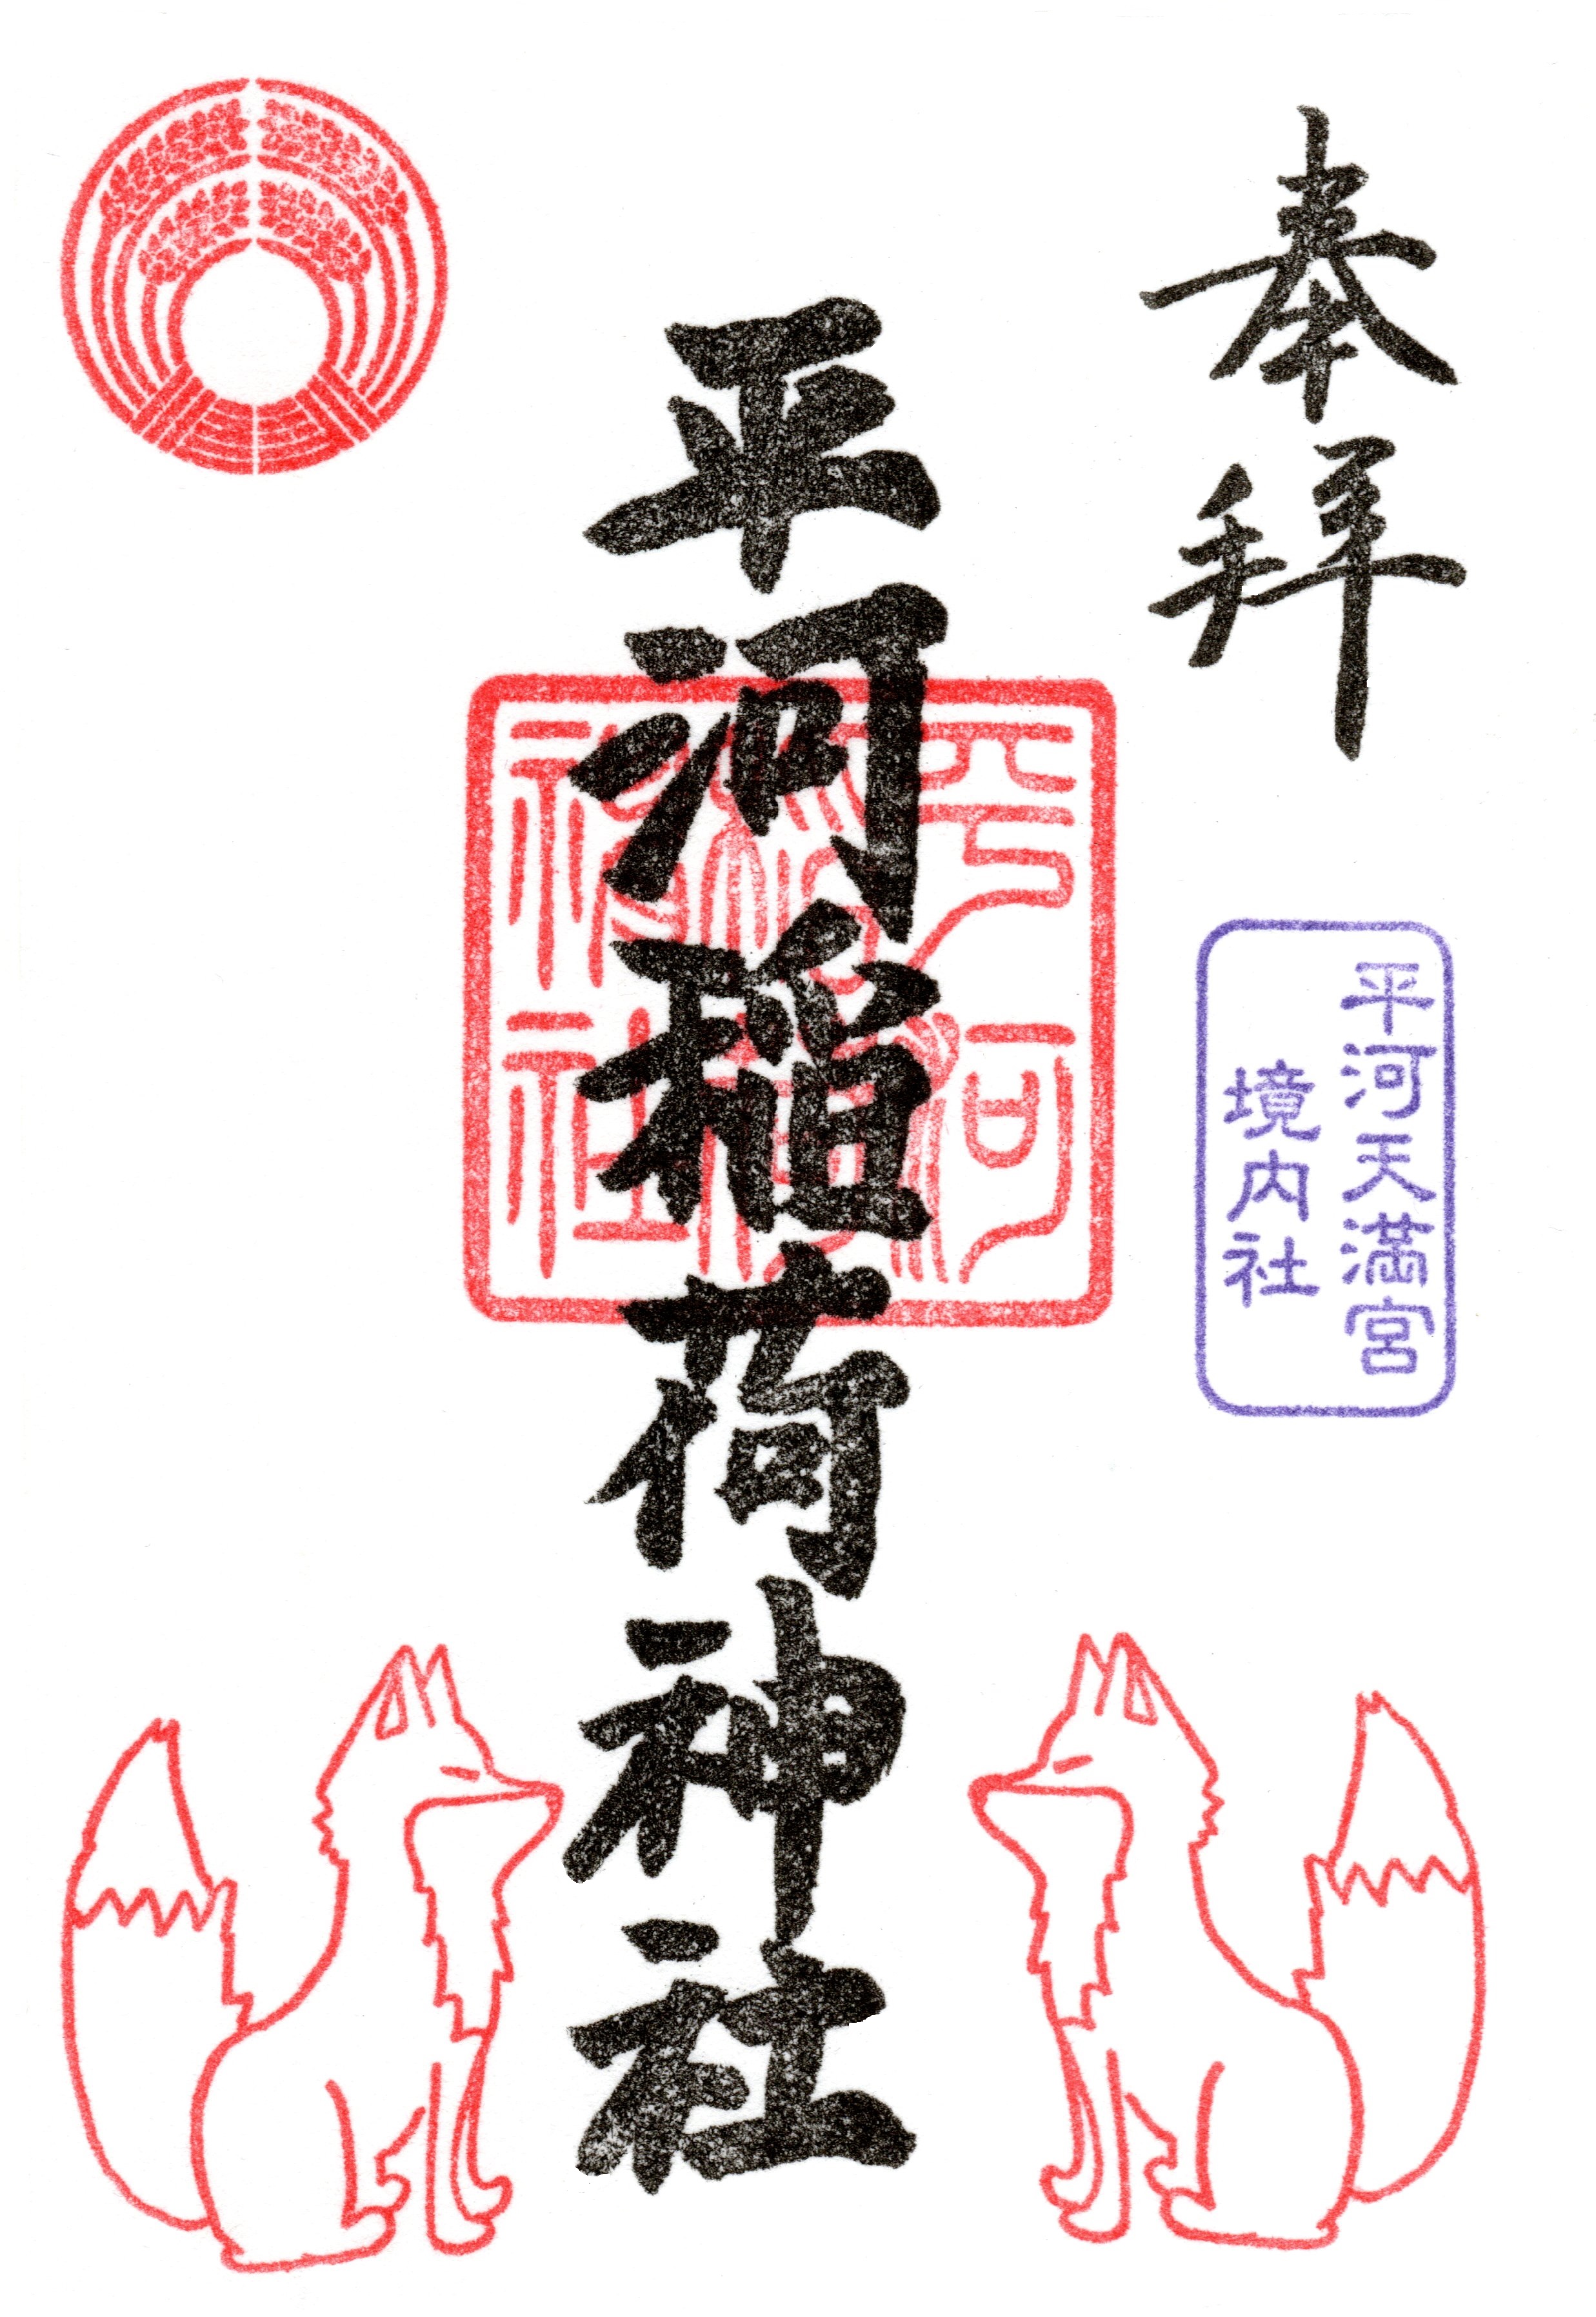 奉拝
平河天満宮
境内社
平河稲荷神社
平河
稲荷
神社